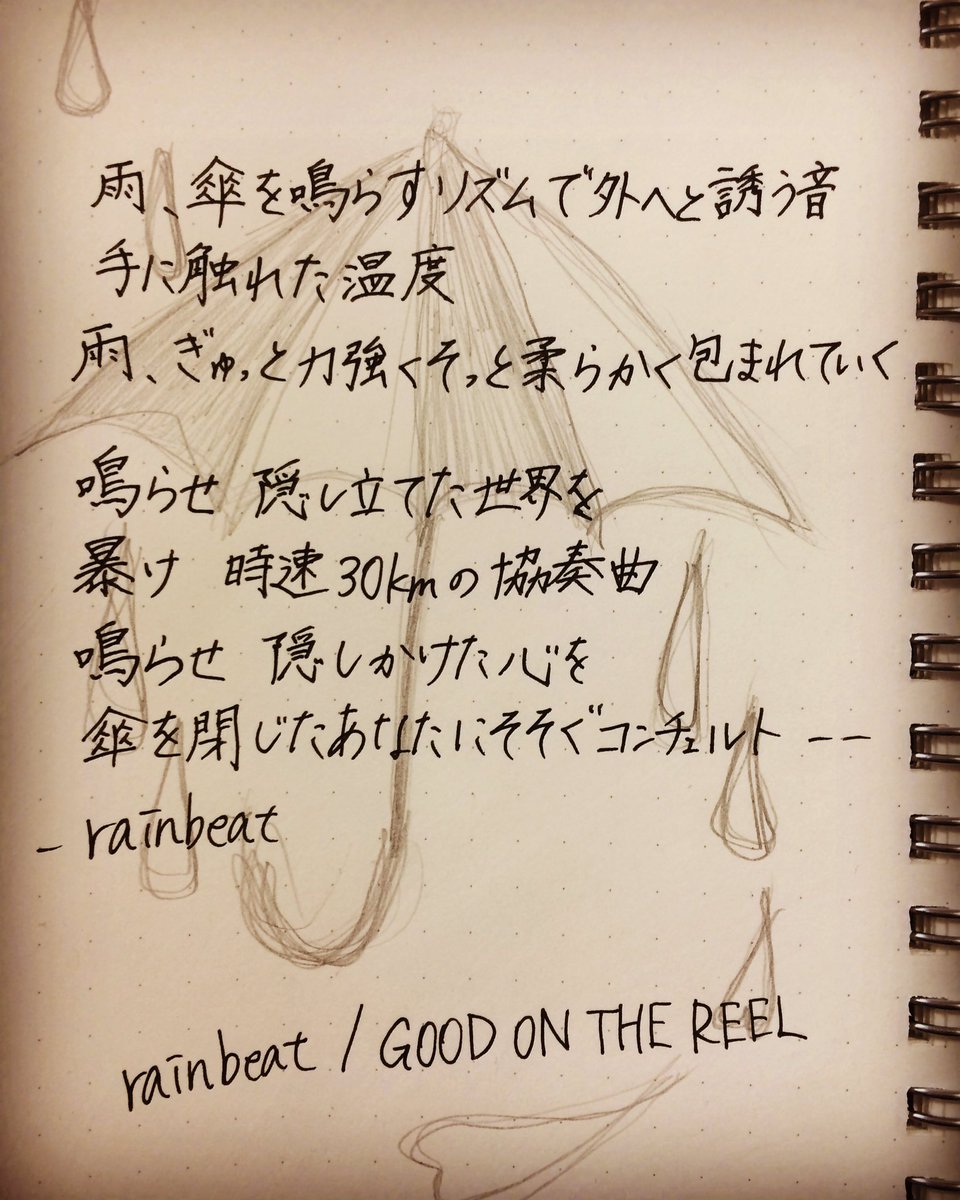 雨、傘を鳴らすリズムで外へと誘う音
手に触れた温度
雨、ぎゅっと力強くそっと柔らかく包まれていく
鳴らせ 隠し立てた世界を
暴け 時速30kmの協奏曲
鳴らせ 隠しかけた心を
傘を閉じたあなたにそそぐコンチェルト --
- rainbeat
rainbeat / GOOD ON THE REEL